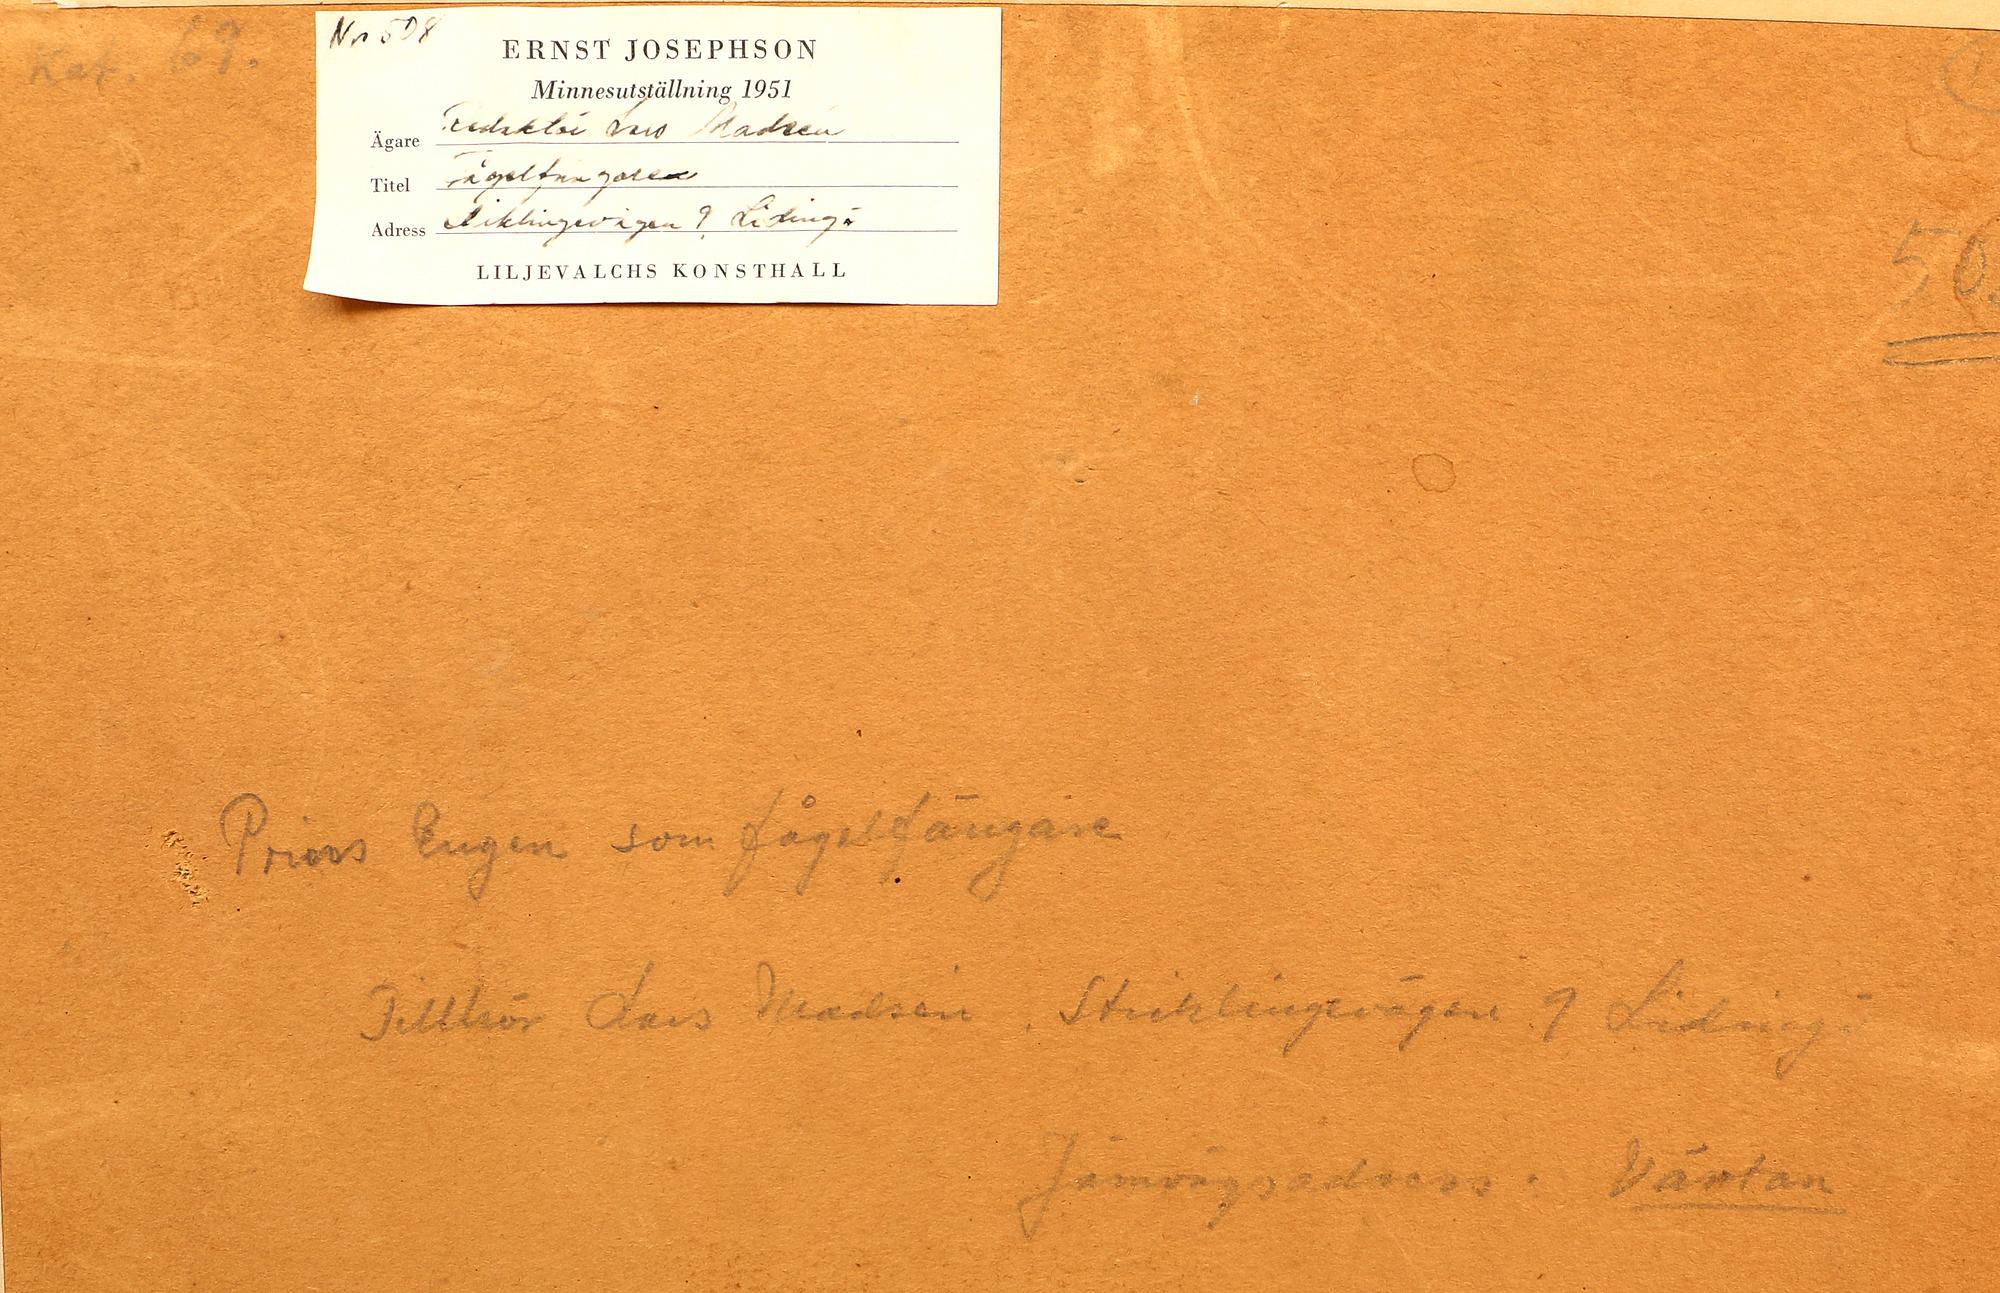 Kat. 69.
Nr 508
ERNST JOSEPHSON
Minnesutställning 1951
Ägare Redaktör Lars Madsén
Titel Fågelfångaren
Adress Stiklingevägen 9, Lidingö
LILJEVALCHS KONSTHALL
50
Prins Eugen som fågelfångare
Tillhör Lars Madsén, Stiklingevägen 9 Lidingö
Järnvägsadress: Värtan